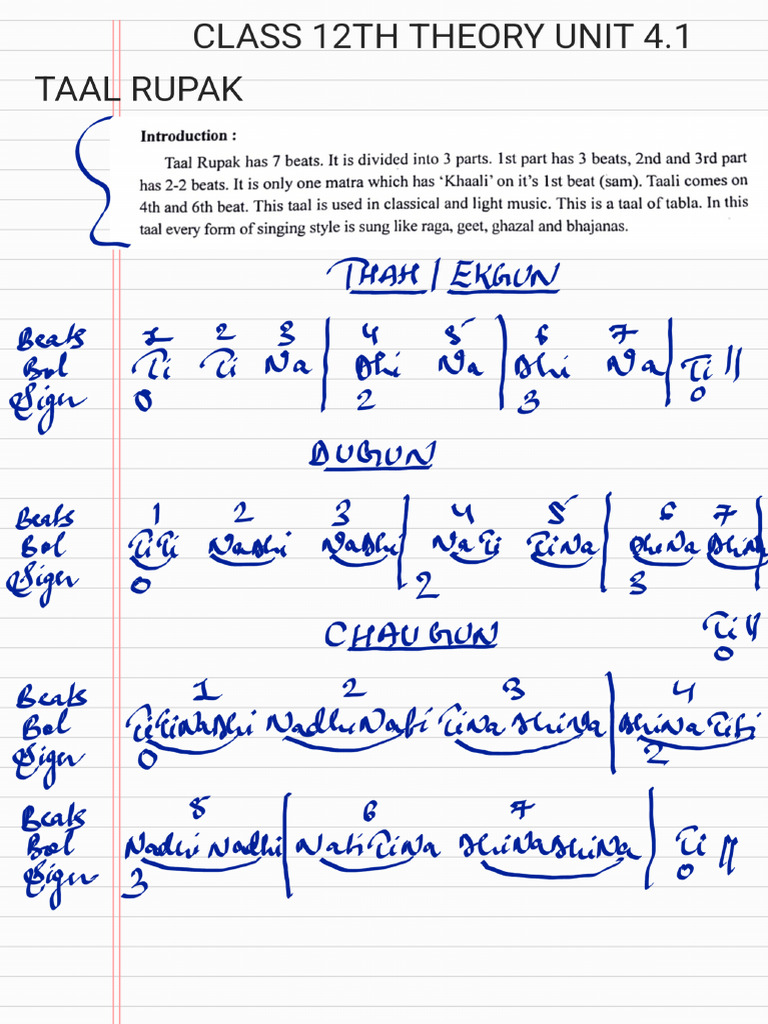 CLASS 12TH THEORY UNIT 4.1
TAAL RUPAK
Introduction :
Taal Rupak has 7 beats. It is divided into 3 parts. 1st part has 3 beats, 2nd and 3rd part
has 2-2 beats. It is only one matra which has ‘Khaali’ on it’s 1st beat (sam). Taali comes on
4th and 6th beat. This taal is used in classical and light music. This is a taal of tabla. In this
taal every form of singing style is sung like raga, geet, ghazal and bhajanas.
THAH / EKGUN
Beats 1 2 3 | 4 5 | 6 7 |
Bol Ti Ti Na | Dhi Na | Dhi Na | Ti ||
Sign 0 2 3 0
DUGUN
Beats 1 2 3 | 4 5 | 6 7 |
Bol TiTi NaDhi NaDhi | NaTi TiNa | DhiNa DhiNa |
Sign 0 2 3
Ti ||
0
CHAUGUN
Beats 1 2 3 | 4
Bol TiTiNaDhi NadhiNaTi TiNaDhiNa | DhiNaTiTi
Sign 0 2
Beats 5 | 6 7 |
Bol NadhiNadhi | NaTiTiNa DhiNaDhiNa | Ti ||
Sign 3 0